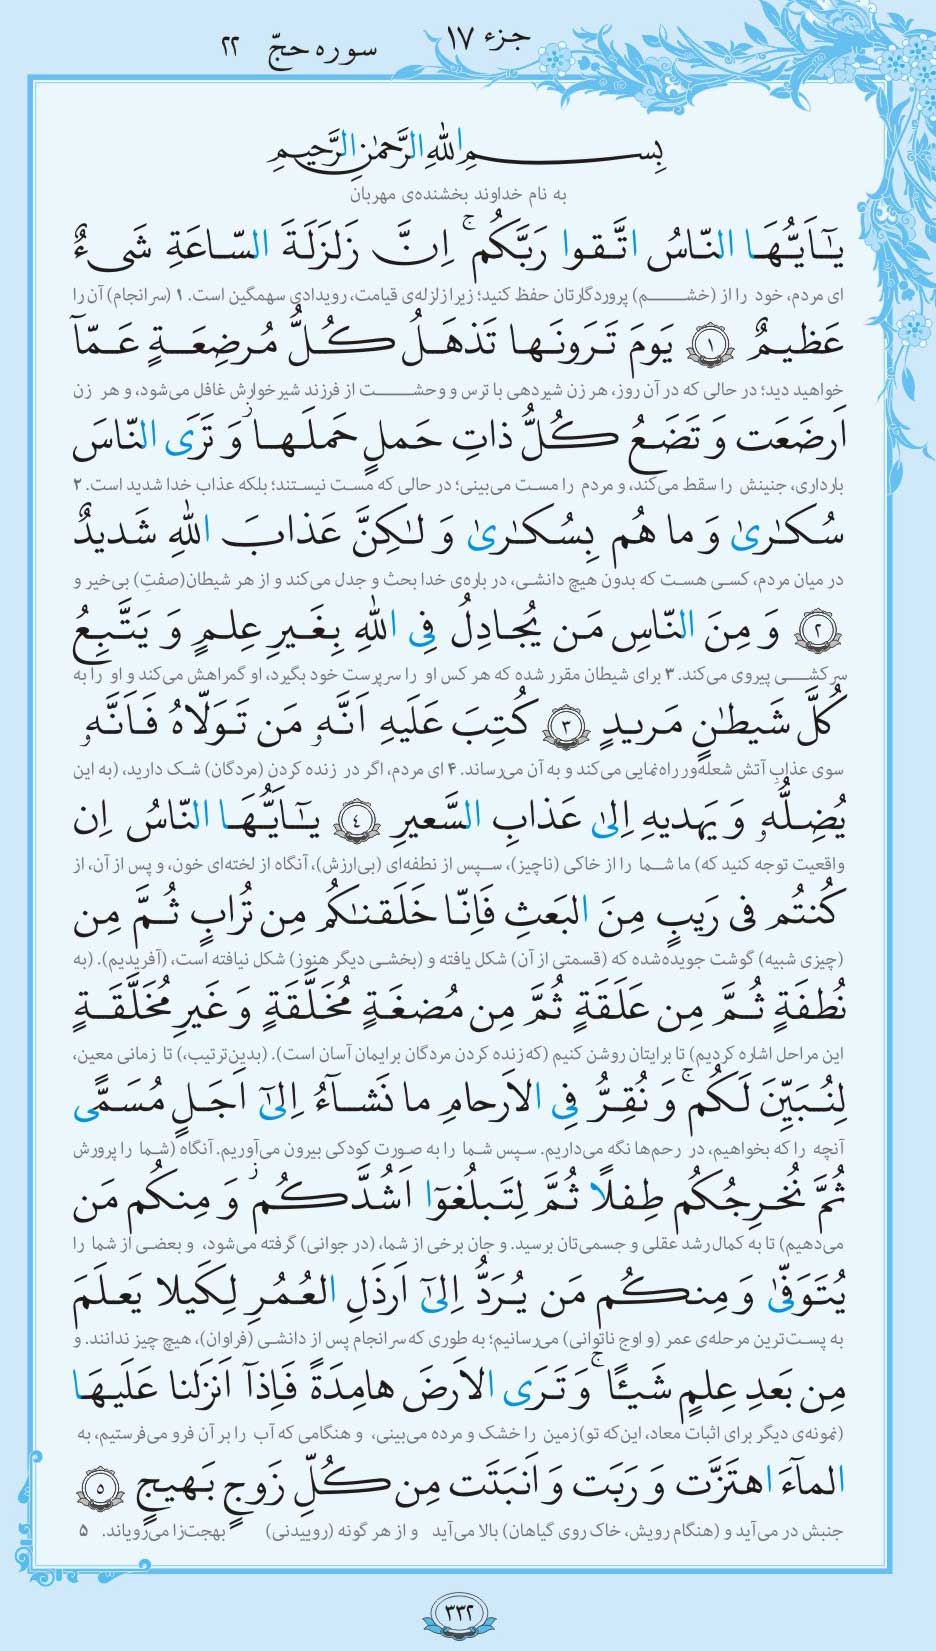 جزء ۱۷
سوره حجّ ۲۲
بِسمِ اللّٰهِ الرَّحمٰنِ الرَّحیمِ
به نام خداوند بخشنده‌ی مهربان
یٰٓاَیُّهَا النّاسُ اتَّقوا رَبَّکُم ۚ اِنَّ زَلزَلَةَ السّاعَةِ شَیءٌ
ای مردم، خود را از (خشم) پروردگارتان حفظ کنید؛ زیرا زلزله‌ی قیامت، رویدادی سهمگین است. ۱ (سرانجام) آن را
عَظیمٌ ﴿۱﴾ یَومَ تَرَونَها تَذهَلُ کُلُّ مُرضِعَةٍ عَمّآ
خواهید دید؛ در حالی که در آن روز، هر زن شیردهی با ترس و وحشت از فرزند شیرخوارش غافل می‌شود، و هر زن
اَرضَعَت وَ تَضَعُ کُلُّ ذاتِ حَملٍ حَملَها ۡ وَ تَرَی النّاسَ
بارداری، جنینش را سقط می‌کند، و مردم را مست می‌بینی؛ در حالی که مست نیستند؛ بلکه عذاب خدا شدید است. ۲
سُکٰریٰ وَ ما هُم بِسُکٰریٰ وَ لٰکِنَّ عَذابَ اللّٰهِ شَدیدٌ
در میان مردم، کسی هست که بدون هیچ دانشی، درباره‌ی خدا بحث و جدل می‌کند و از هر شیطان (صفتِ) بی‌خیر و
﴿۲﴾ وَ مِنَ النّاسِ مَن یُجادِلُ فِی اللّٰهِ بِغَیرِ عِلمٍ وَ یَتَّبِعُ
سرکشی پیروی می‌کند. ۳ برای شیطان مقرر شده که هر کس او را سرپرست خود بگیرد، او گمراهش می‌کند و او را به
کُلَّ شَیطٰنٍ مَریدٍ ﴿۳﴾ کُتِبَ عَلَیهِ اَنَّهٗ مَن تَوَلّاهُ فَاَنَّهٗ
سوی عذابِ آتش شعله‌ور راه‌نمایی می‌کند و به آن می‌رساند. ۴ ای مردم، اگر در زنده کردن (مردگان) شک دارید، (به این
یُضِلُّهٗ وَ یَهدیهِ اِلیٰ عَذابِ السَّعیرِ ﴿۴﴾ یٰٓاَیُّهَا النّاسُ اِن
واقعیت توجه کنید که) ما شما را از خاکی (ناچیز)، سپس از نطفه‌ای (بی‌ارزش)، آنگاه از لخته‌ای خون، و پس از آن، از
کُنتُم فی رَیبٍ مِنَ البَعثِ فَاِنّا خَلَقنٰکُم مِن تُرابٍ ثُمَّ مِن
(چیزی شبیه) گوشت جویده‌شده که (قسمتی از آن) شکل یافته و (بخشی دیگر هنوز) شکل نیافته است، (آفریدیم). (به
نُطفَةٍ ثُمَّ مِن عَلَقَةٍ ثُمَّ مِن مُضغَةٍ مُخَلَّقَةٍ وَ غَیرِ مُخَلَّقَةٍ
این مراحل اشاره کردیم) تا برایتان روشن کنیم (که زنده کردن مردگان برایمان آسان است). (بدین‌ترتیب،) تا زمانی معین،
لِنُبَیِّنَ لَکُم ۚ وَ نُقِرُّ فِی الاَرحامِ ما نَشآءُ اِلیٰٓ اَجَلٍ مُسَمًّی
آنچه را که بخواهیم، در رحم‌ها نگه می‌داریم. سپس شما را به صورت کودکی بیرون می‌آوریم. آنگاه (شما را پرورش
ثُمَّ نُخرِجُکُم طِفلًا ثُمَّ لِتَبلُغوٓا اَشُدَّکُم ۡ وَ مِنکُم مَن
می‌دهیم) تا به کمال رشد عقلی و جسمی‌تان برسید. و جان برخی از شما، (در جوانی) گرفته می‌شود، و بعضی از شما را
یُتَوَفّیٰ وَ مِنکُم مَن یُرَدُّ اِلیٰٓ اَرذَلِ العُمُرِ لِکَیلا یَعلَمَ
به پست‌ترین مرحله‌ی عمر (و اوج ناتوانی) می‌رسانیم؛ به طوری که سرانجام پس از دانشی (فراوان)، هیچ چیز ندانند. و
مِن بَعدِ عِلمٍ شَیـًٔا ۚ وَ تَرَی الاَرضَ هامِدَةً فَاِذآ اَنزَلنا عَلَیهَا
(نمونه‌ی دیگر برای اثبات معاد، این‌که تو) زمین را خشک و مرده می‌بینی، و هنگامی که آب را بر آن فرو می‌فرستیم، به
المآءَ اهتَزَّت وَ رَبَت وَ اَنبَتَت مِن کُلِّ زَوجٍ بَهیجٍ ﴿۵﴾
جنبش در می‌آید و (هنگام رویش، خاک روی گیاهان) بالا می‌آید و از هر گونه (روییدنی) بهجت‌زا می‌رویاند. ۵
۳۳۲